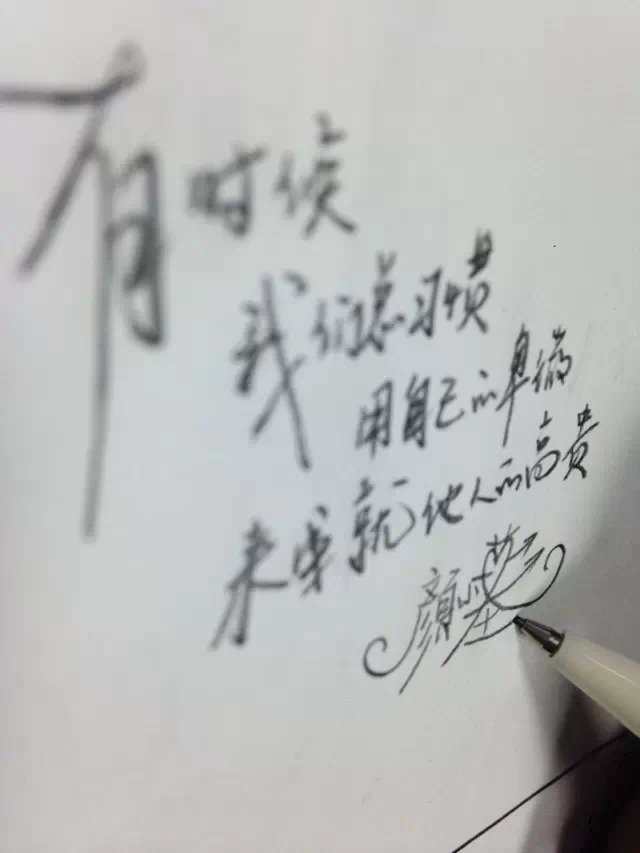 有时候
我们总习惯
用自己的卑微
来牵就他人的高贵
顏